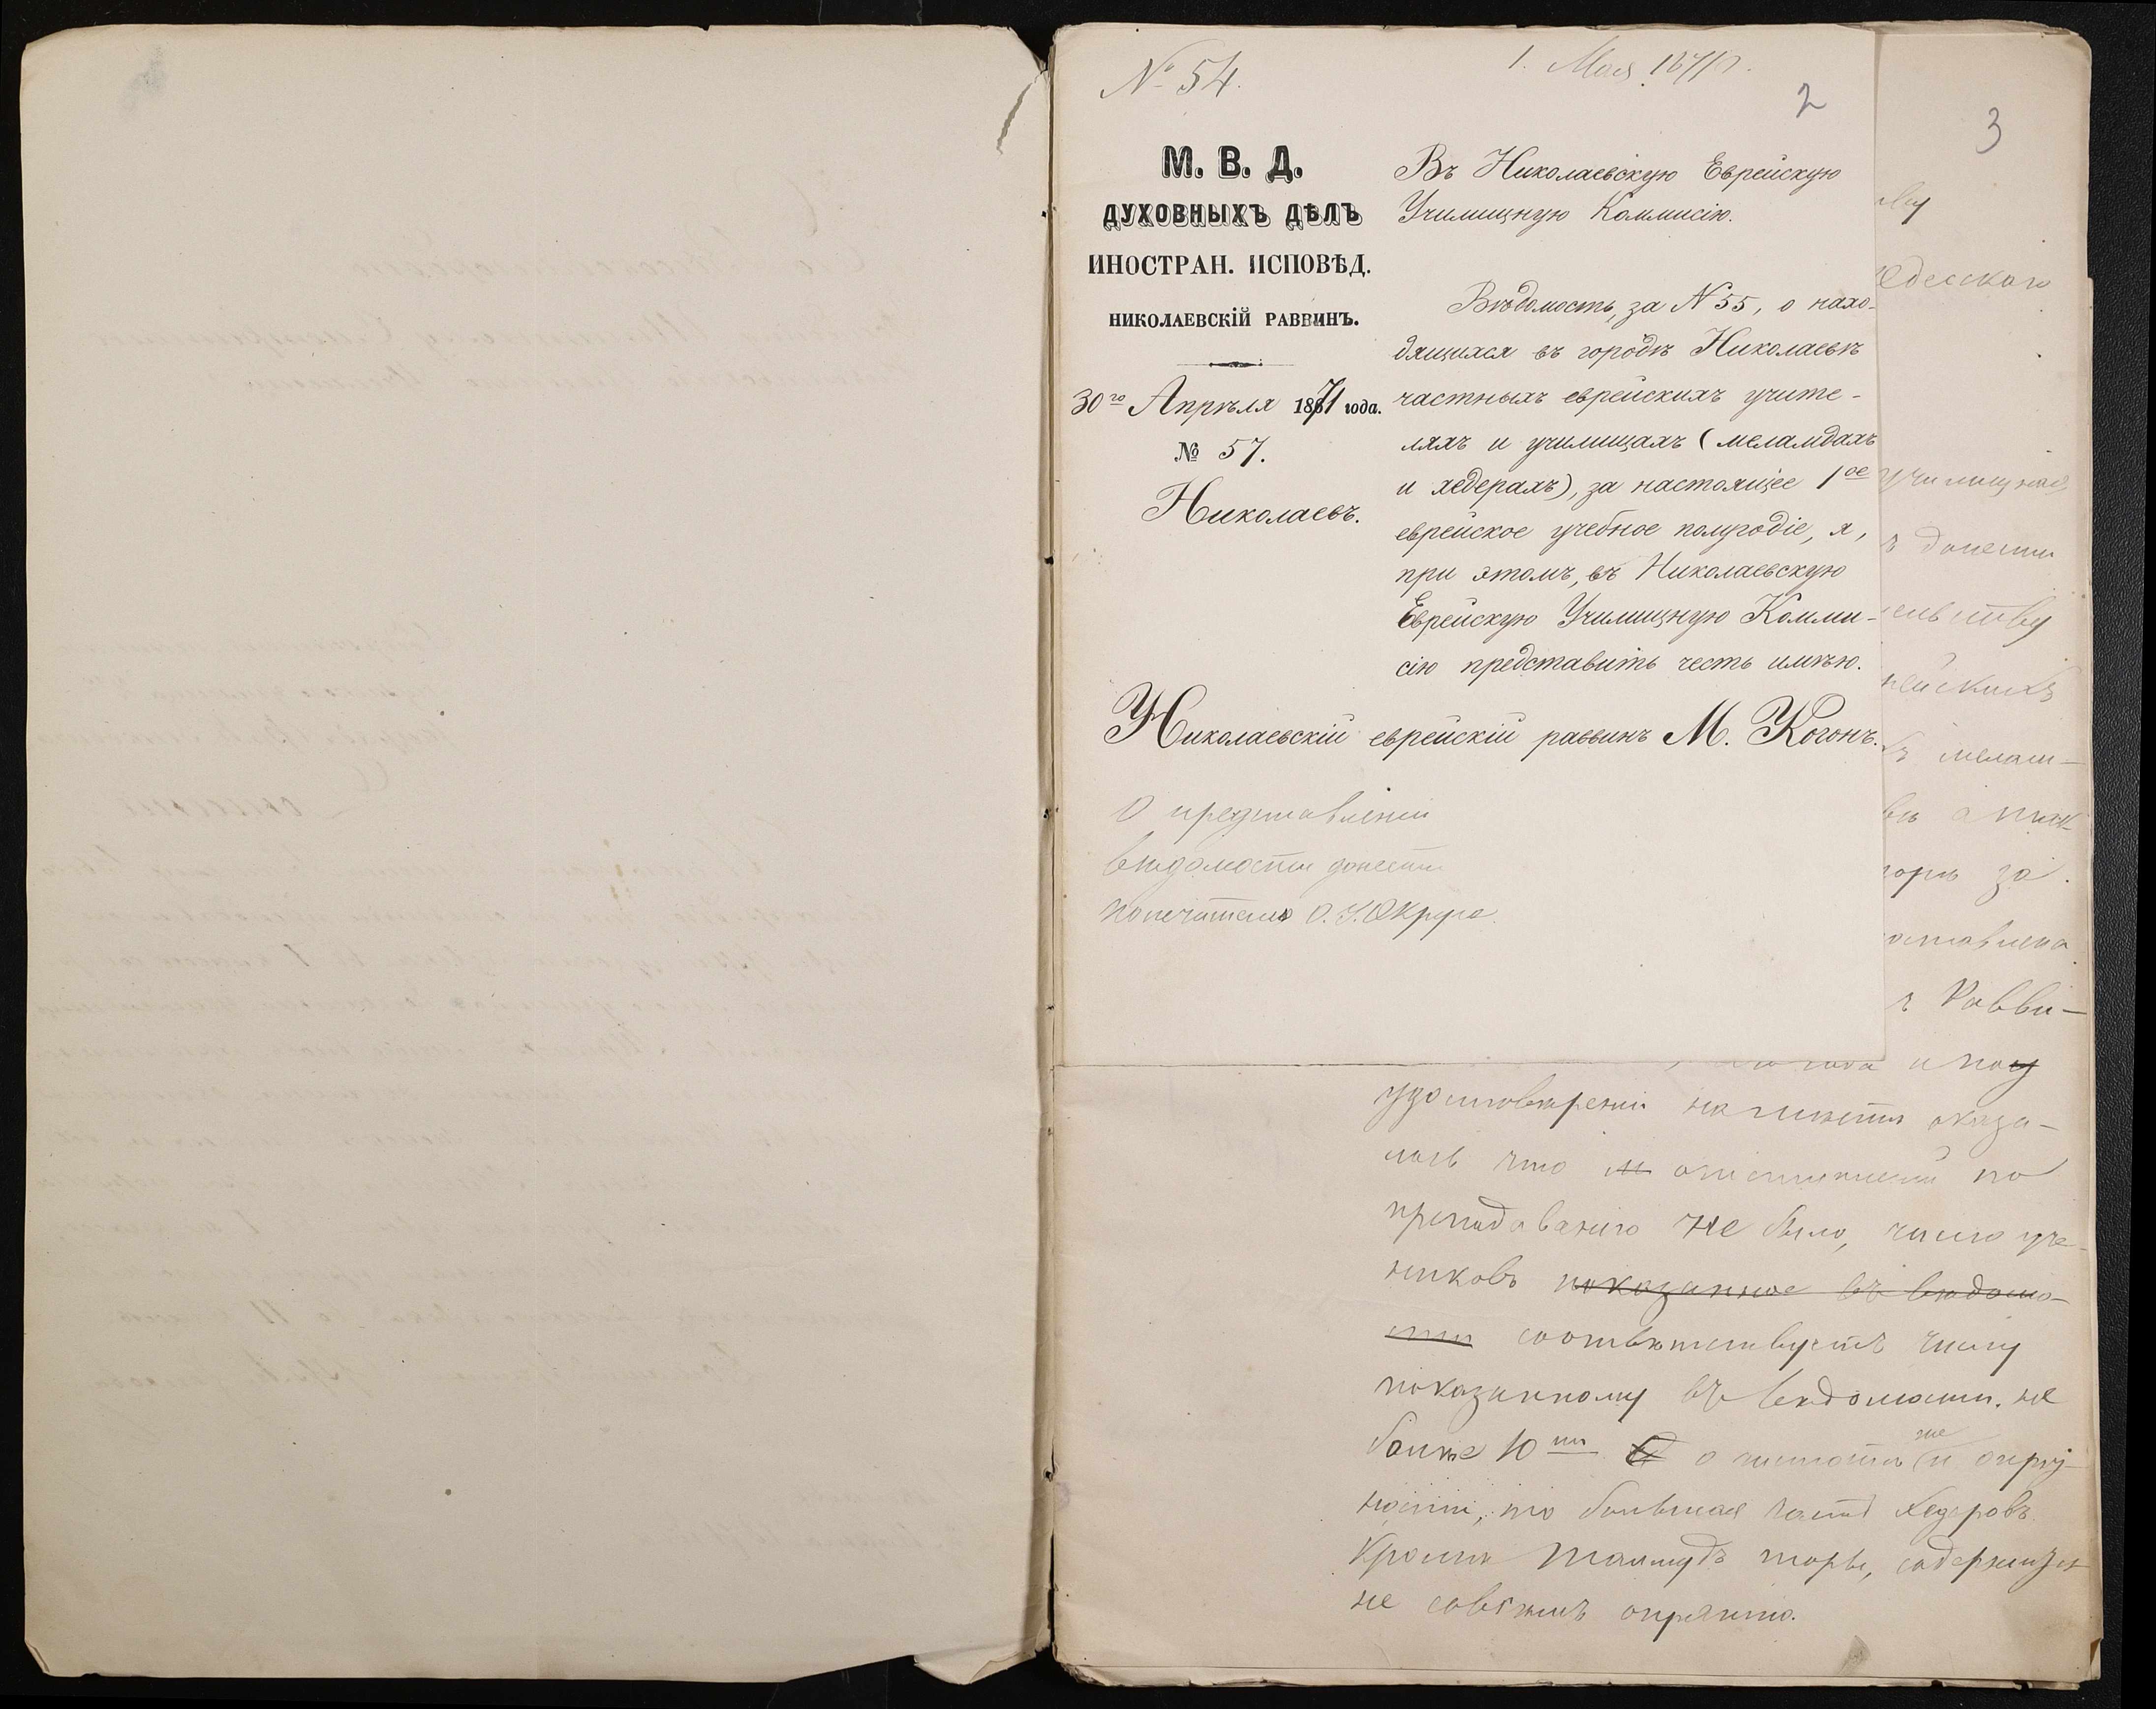 № 54.
1. Мая 1871.
2
М. В. Д.
ДУХОВНЫХЪ ДѢЛЪ
ИНОСТРАН. ИСПОВѢД.
НИКОЛАЕВСКІЙ РАВВИНЪ.
30го Апрѣля 1871 года.
№ 57.
Николаевъ.
Въ Николаевскую Еврейскую
Училищную Коммисію.
Вѣдомость, за № 55, о нахо-
дящихся въ городѣ Николаевѣ
частныхъ еврейскихъ учите-
ляхъ и училищахъ (меламдахъ
и хедерахъ), за настоящее 1ое
еврейское учебное полугодіе, я,
при этомъ, въ Николаевскую
Еврейскую Училищную Комми-
сію представить честь имѣю.
Николаевскій еврейскій раввинъ М. Когонъ.
О представленіи
вѣдомости донести
попечителю О. У. Округа.
3
Одесскаго
Училищная
донести
мелам-
за
Равви-
удостовѣреніи на мѣстѣ оказа-
лось что по
преподаванію не было, число уче-
никовъ показанное въ вѣдомо-
сти соотвѣтствуетъ числу
показанному въ вѣдомости. не
болѣе 10ти о чистотѣ же и опрят-
ности, то большая часть хедеровъ
кромѣ талмудъ торы, содержится
не совсѣмъ опрятно.